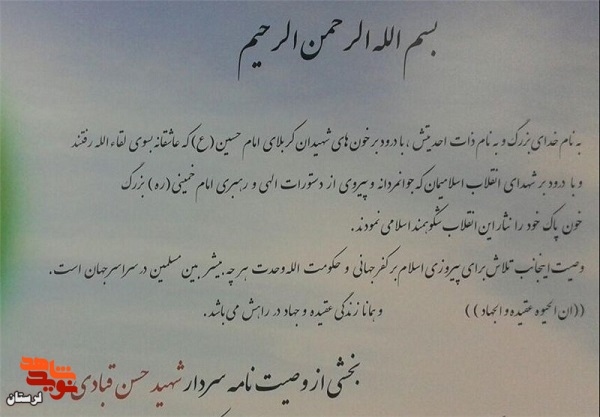 بسم الله الرحمن الرحیم
به نام خدای بزرگ و به نام ذات احدیتش ، با درود بر خون های شهیدان کربلای امام حسین (ع) که عاشقانه بسوی لقاء الله رفتند
و با درود بر شهدای انقلاب اسلامیمان که جوانمردانه و پیروی از دستورات الهی و رهبری امام خمینی (ره) بزرگ
خون پاک خود را نثار این انقلاب شکوهمند اسلامی نمودند.
وصیت اینجانب تلاش برای پیروزی اسلام بر کفر جهانی و حکومت الله وحدت هر چه بیشتر بین مسلمین در سراسر جهان است.
((ان الحیوه عقیده و الجهاد)) و همانا زندگی عقیده و جهاد در راهش می باشد.
بخشی از وصیت نامه سردار شهید حسن قبادی
نوید شاهد
لرستان